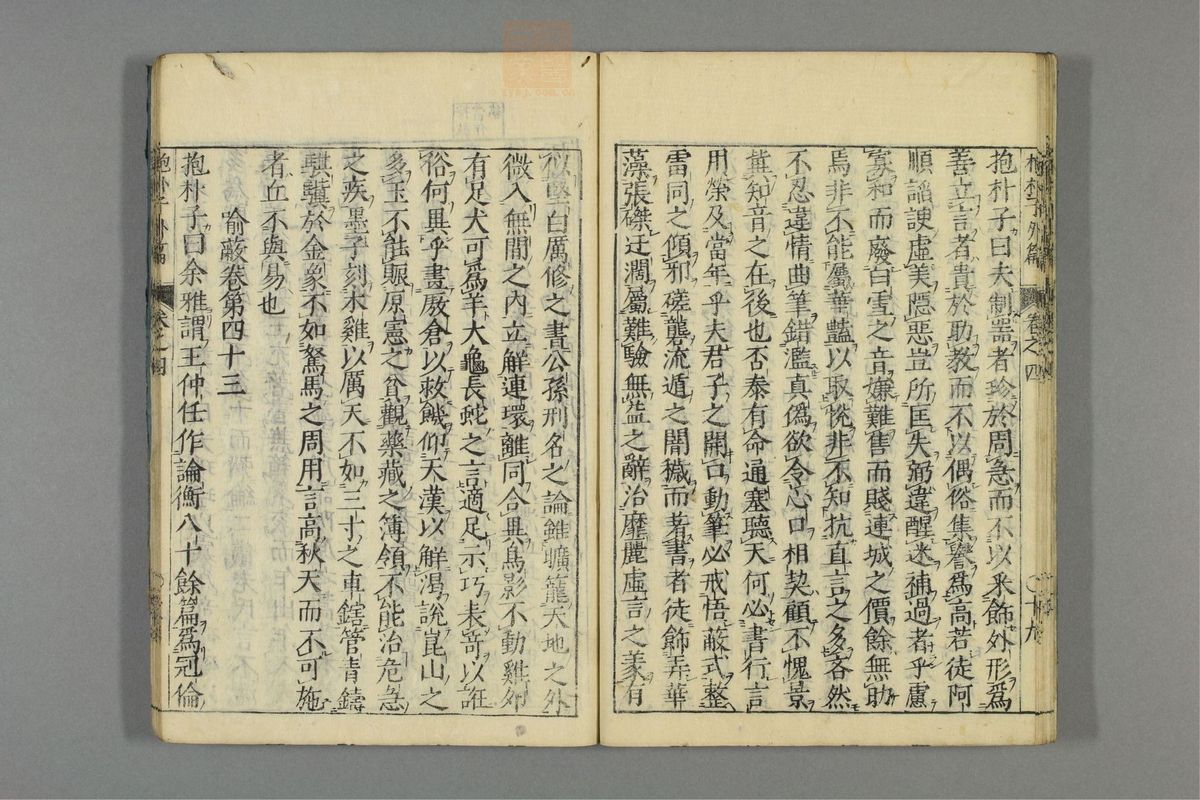 抱朴子曰夫制噐者珍於周急而不以釆飾外形爲
善立言者貴於助教而不以偶俗集譽爲高若徒阿
順謟諛虚美隱惡豈所匡失弼違醒迷補過者乎慮
寡和而廢白雪之音嫌難售而賤連城之價餘無助
焉非不能屬華豔以取恱非不知抗直言之多吝然
不忍違情曲筆錯濫真偽欲令心口相契顧不愧景
冀知音之在後也否泰有命通塞聽天何必書行言
用榮及當年乎夫君子之開口動筆必戒悟蔽式整
雷同之傾邪磋礲流遁之闇穢而著書者徒飾弄華
藻張磔迂濶屬難驗無益之辭治靡麗虚言之美有
似堅白厲修之書公孫刑名之論雖曠籠天地之外
微入無間之內立解連環離同合異鳥影不動雞卵
有足犬可爲羊大龜長蛇之言適足示巧表竒以誑
俗何異乎畫敖倉以救饑仰天漢以解渴說崑山之
多玉不能賑原憲之貧觀藥藏之簿領不能治危急
之疾墨子刻木雞以厲天不如三寸之車鎋管青鑄
騏驥於金象不如駑馬之周用言高秋天而不可施
者丘不與易也
喻蔽卷第四十三
抱朴子曰余雅謂王仲任作論衡八十餘篇爲冠倫
抱朴子外篇
卷之四
十九